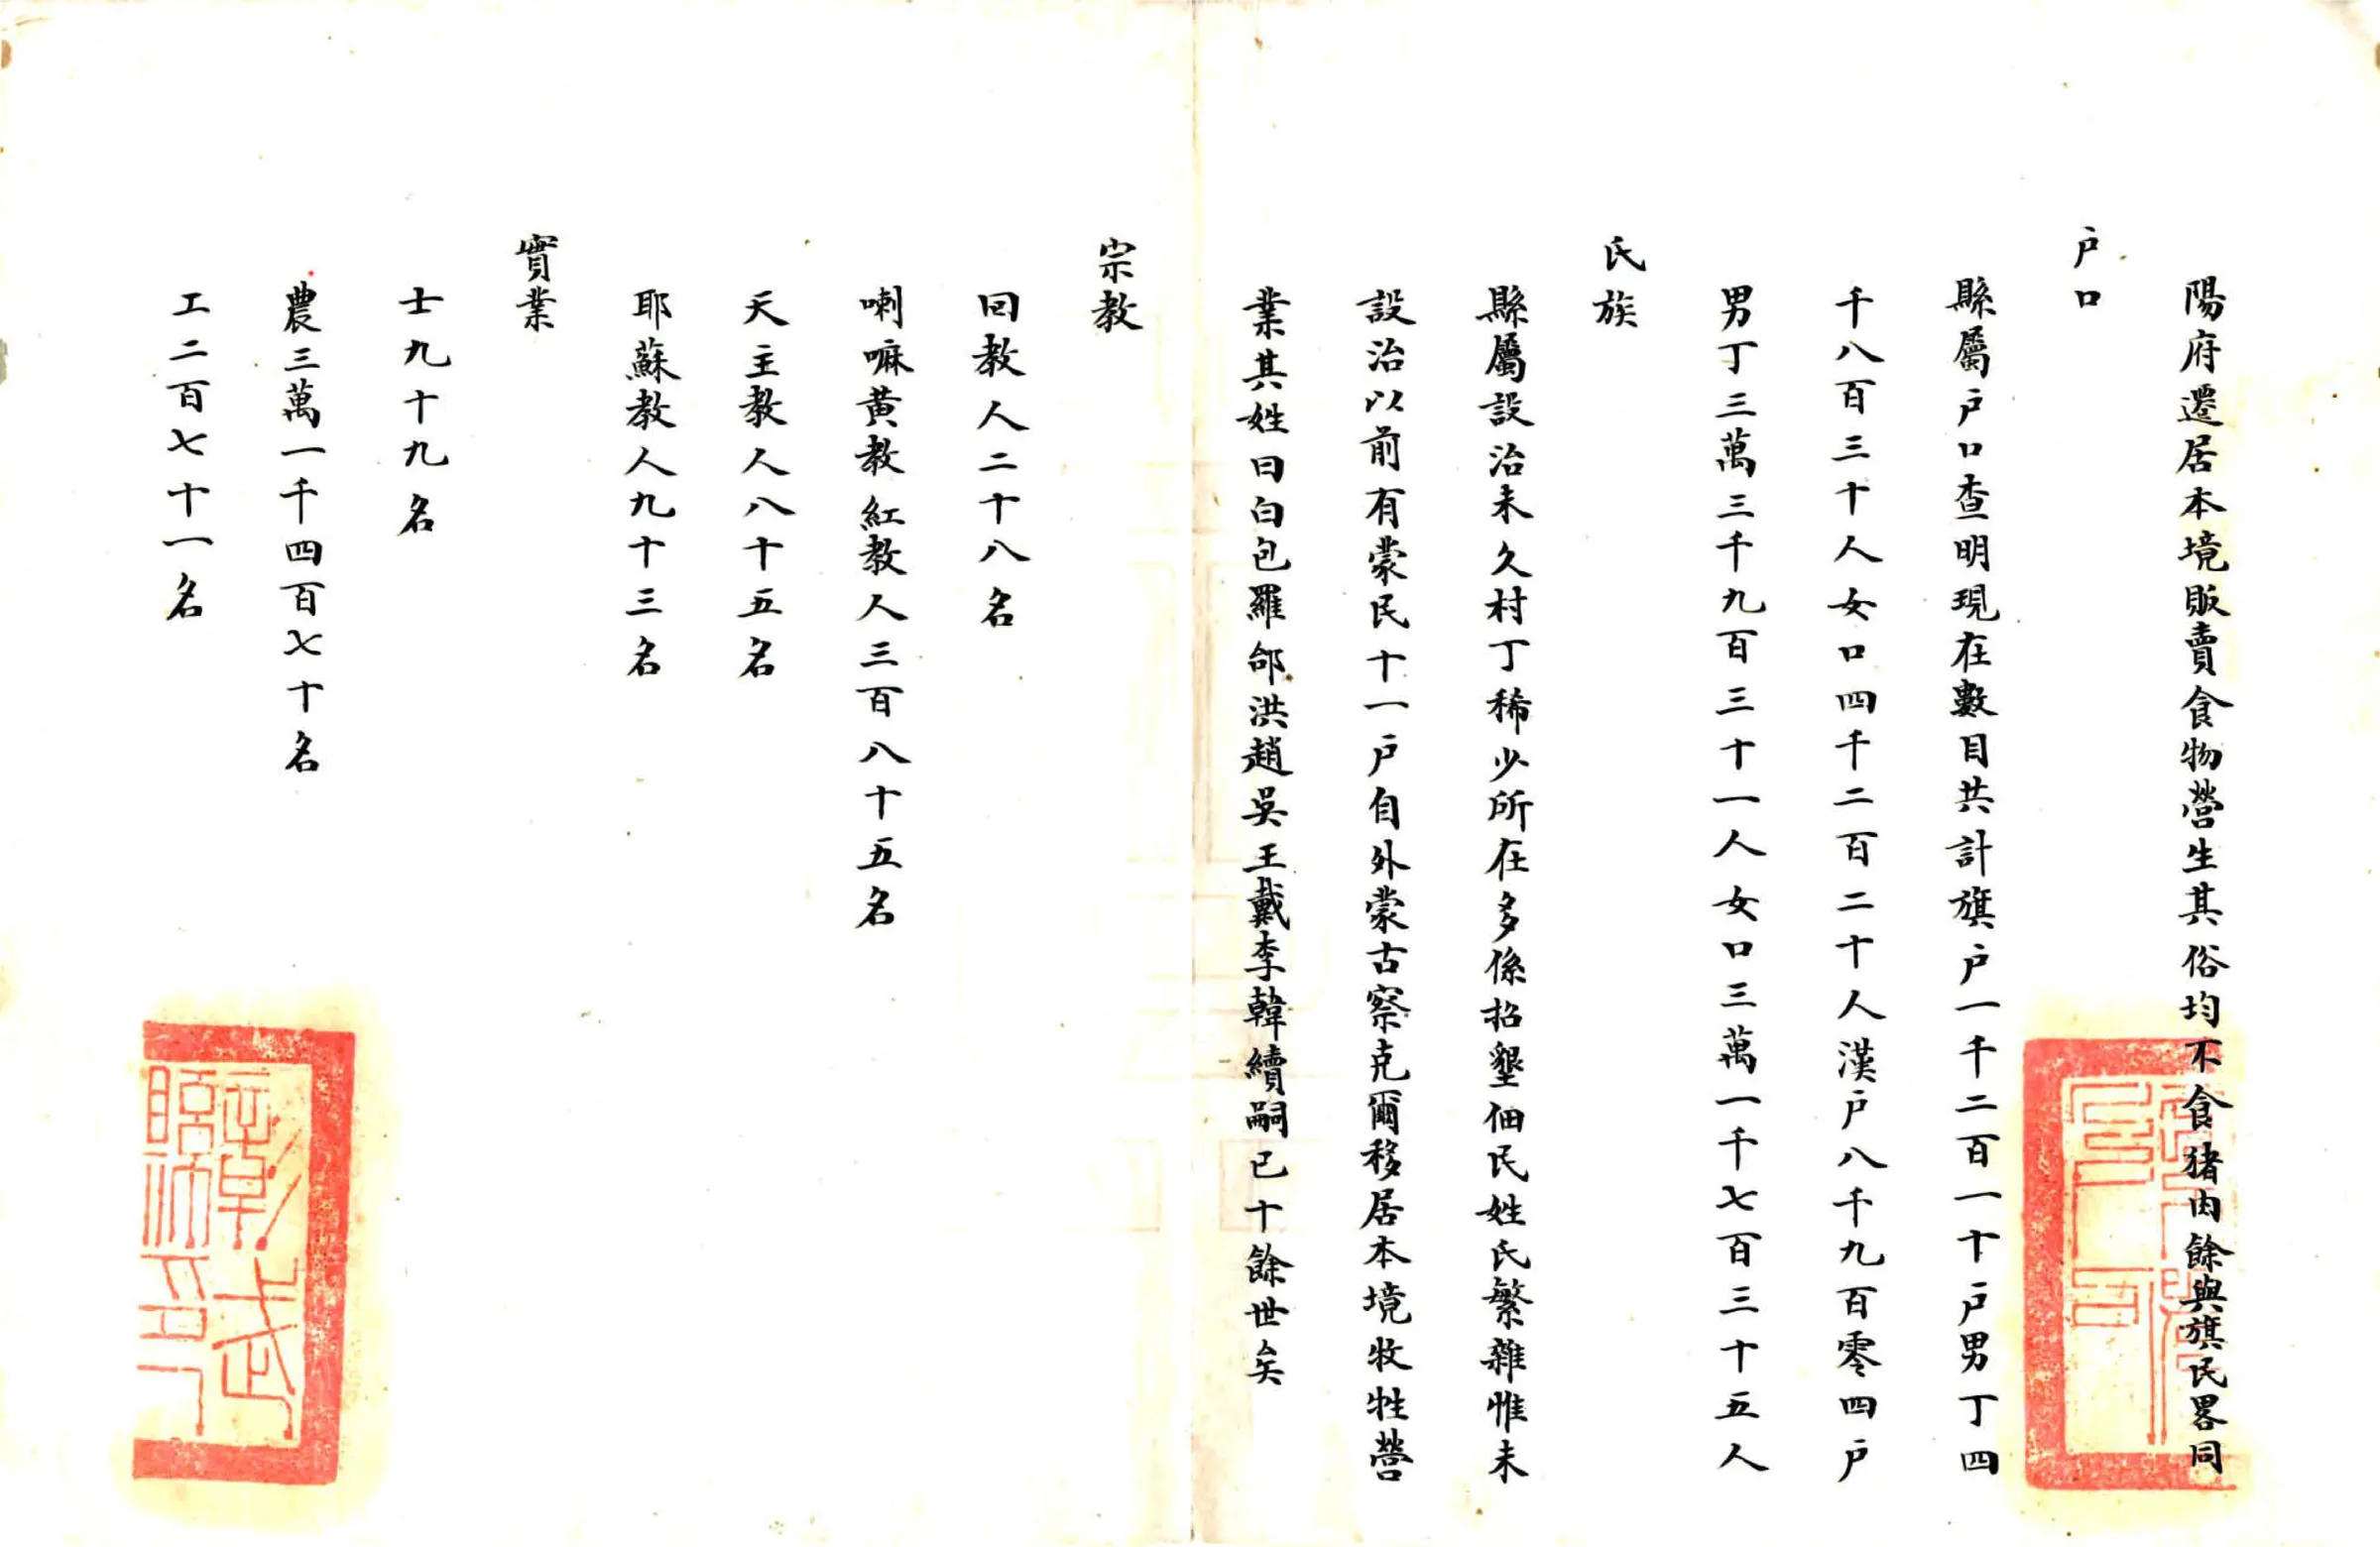 陽府遷居本境販賣食物營生其俗均不食猪肉餘與旗民畧同
户口
縣屬户口查明現在數目共計旗户一千二百一十户男丁四
千八百三十人女口四千二百二十人漢户八千九百零四户
男丁三萬三千九百三十一人女口三萬一千七百三十五人
氏族
縣屬設治未久村丁稀少所在多係招墾佃民姓氏繁雜惟未
設治以前有蒙民十一户自外蒙古察克爾移居本境牧牲營
業其姓曰白包羅邰洪趙吳王戴李韓續嗣已十餘世矣
宗教
回教人二十八名
喇嘛黄教紅教人三百八十五名
天主教人八十五名
耶蘇教人九十三名
實業
士九十九名
農三萬一千四百七十名
工二百七十一名